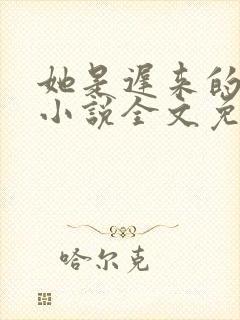 她是迟来的
小说全文免
哈尔克